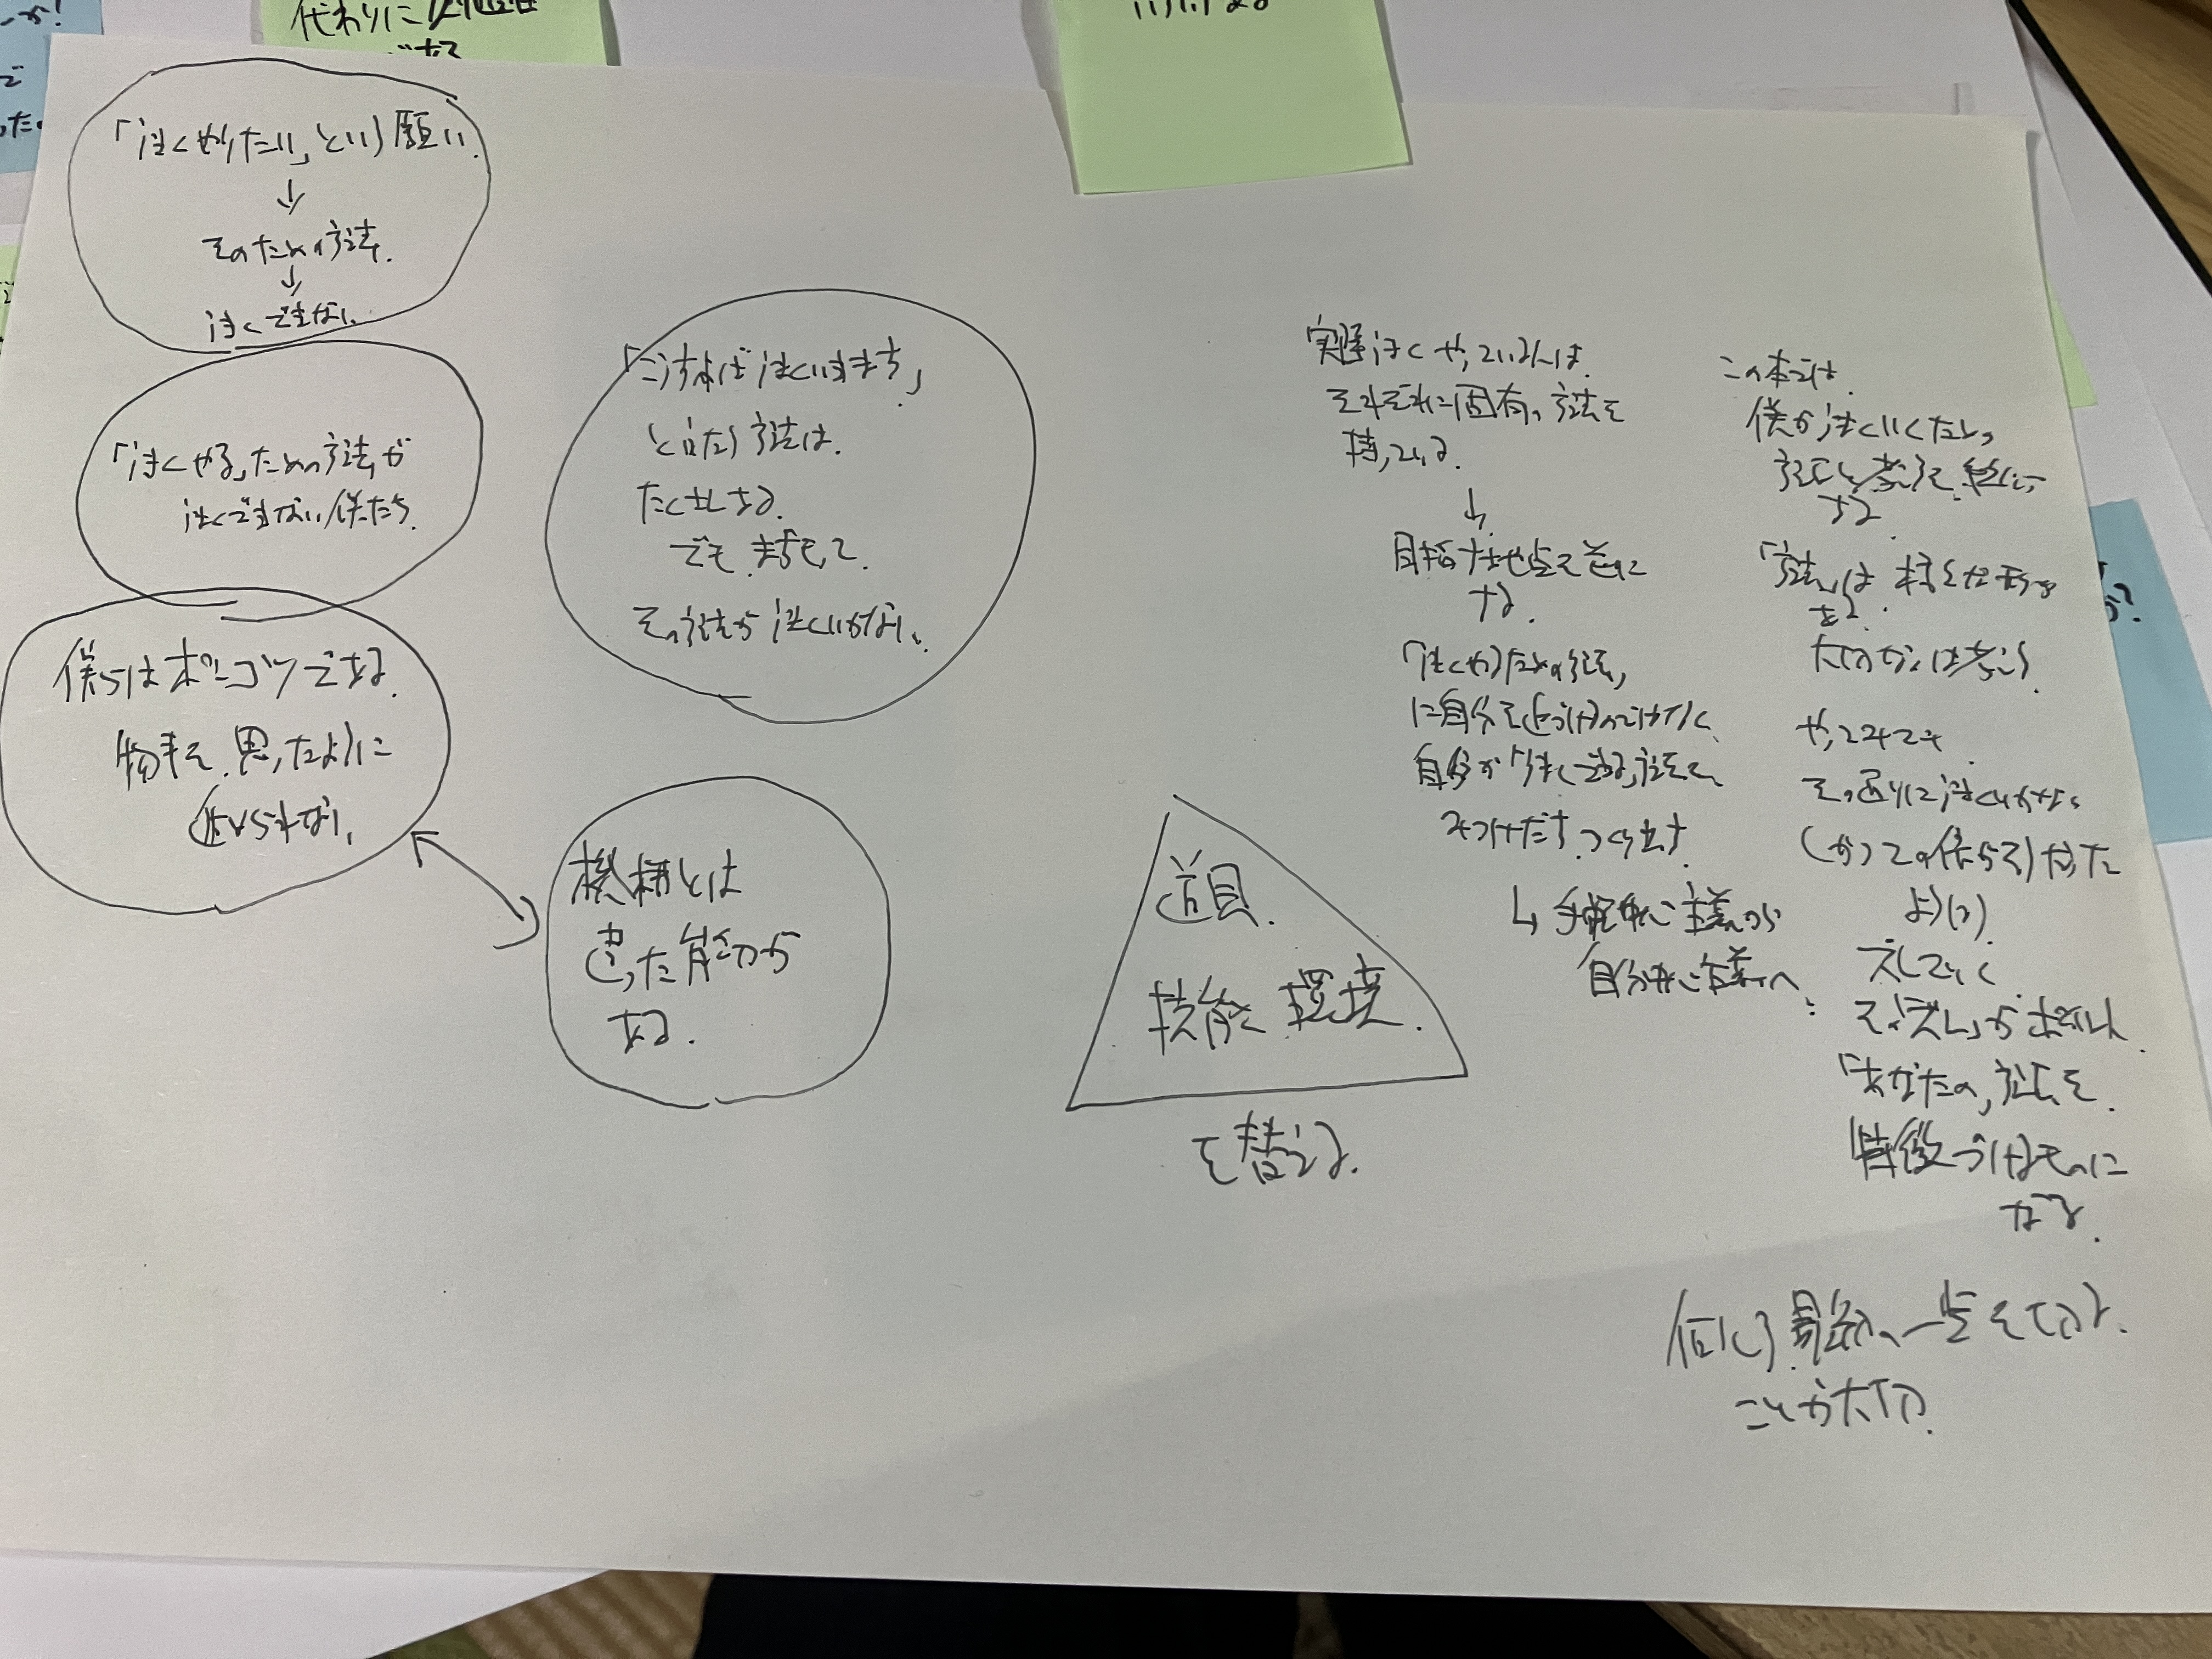 代わりに
「うまくやりたい」という願い
↓
そのための方法
↓
うまくできない
「うまくやる」ための方法が
うまくできない僕たち
僕らはポンコツである
物事を、思ったように
進められない
「こうすればうまくいきます」
と言う方法は
たくさんある
でも
その方法がうまくいかない
機械とは
違った能力が
ある
道具
技能 環境
を替える
実際うまくやっている人は
それぞれに固有の方法を
持っている
↓
目指す地点を逆に
する
「うまくやるための方法」
に自分を近づけるのではなく
自分が「うまくできる」方法を
みつけだす つくり出す
↳ 手法中心主義から
自分中心主義へ
この本では
僕がうまくいくための
方法と考え方を
する
「方法」は
ある
大切なのは考え方
やってみても
その通りにうまくいかない
(かつての僕らが)だった
ように)
ズレていく
その「ズレ」がポイント
「あなたの」方法を
特徴づけるものに
なる
一歩を
ことが大切